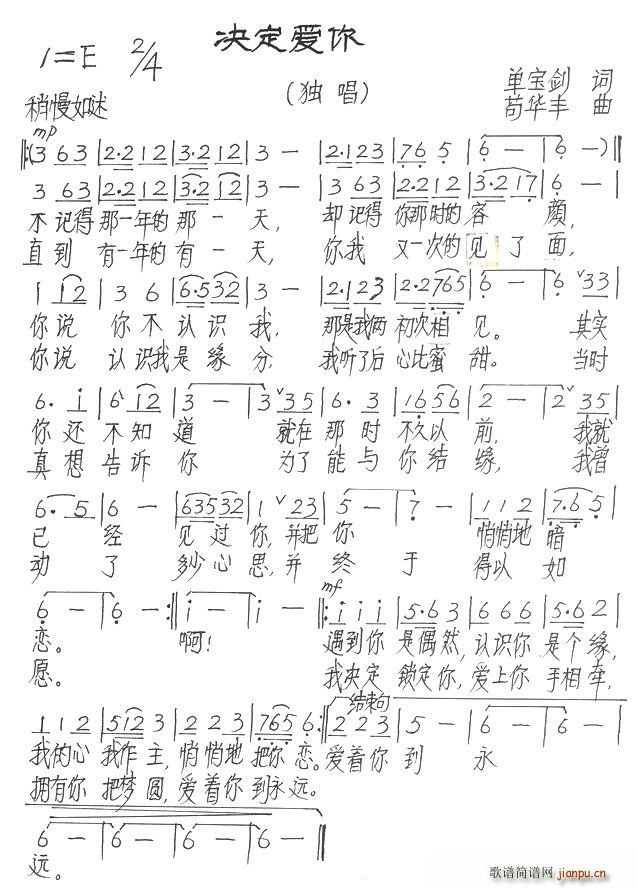 决定爱你
1=E 2/4
（独唱）
单宝剑 词
苟华丰 曲
稍慢如述
mp
‖:(3 63|2·2 12|3·2 12|3 —|2·1 23|76 5|6 —|6 —)‖
3 63|2·2 12|3·2 12|3 —|3 63|2·2 12|3·2 17|6 —|
不记得 那一年的 那一天， 却记得 你那时的 容颜，
直到 有一年的 有一天， 你我 又一次的 见了面，
1 12|3 6|6·5 32|3 —|2·1 23|2·2 765|6 —|6 ˅33|
你说 你不认识我， 那是我俩 初次相见。 其实
你说 认识我是缘分， 我听了后 心比蜜甜。 当时
6· i|6 12|3 —|3 ˅35|6· 3|16 56|2 —|2 ˅35|
你还不知道 就在那时不久以前， 我就
真想告诉你 为了能与你结缘， 我曾
6· 5|6 —|635 32|1 ˅23|5 —|7 —|1 12|7·6 5|
已经见过你，并把你 悄悄地暗
动了多少心思，并终于 得以如
6 —|6 —:‖i —|i —‖:i i i|5·6 3|6 6 6|5·6 2|
mf
恋。 啊！ 遇到你 是偶然，认识你 是个缘，
愿。 我决定 锁定你，爱上你 手相牵，
结束句
1 1 2|512 3|2 2 3|765 6:‖2 2 3|5 —|6 —|6 —|
我的心 我作主，悄悄地 把你恋。爱着你到永
拥有你 把梦圆，爱着你 到永远。
6 —|6 —|6 —|6 —‖
远。
歌谱简谱网
jianpu.cn